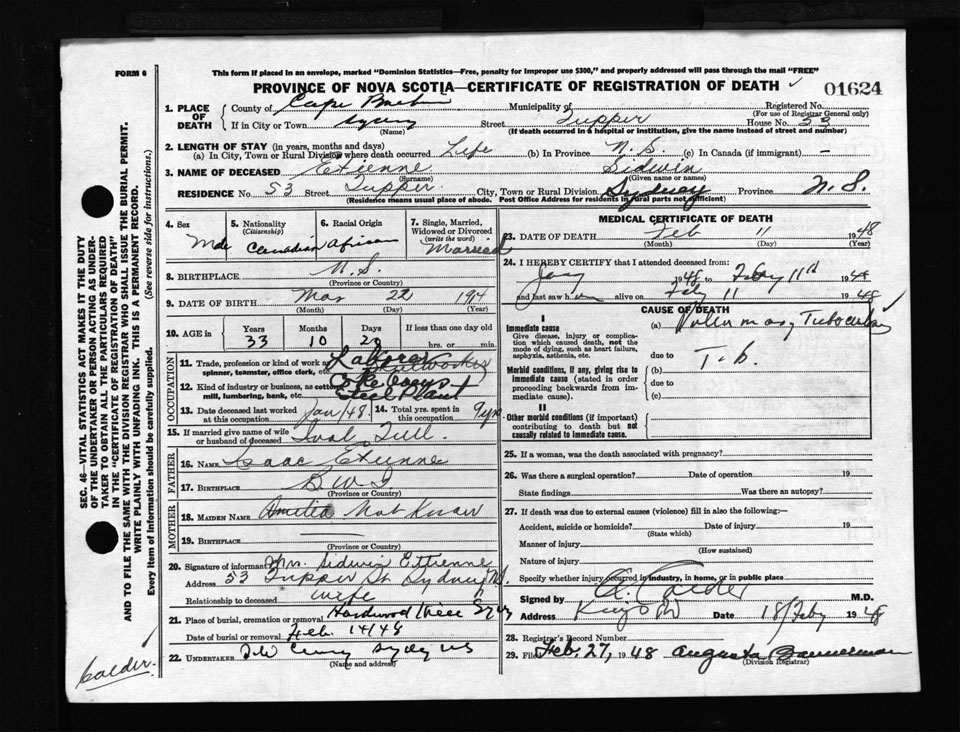 FORM 6
This form if placed in an envelope, marked "Dominion Statistics—Free, penalty for improper use $300," and properly addressed will pass through the mail "FREE"
PROVINCE OF NOVA SCOTIA—CERTIFICATE OF REGISTRATION OF DEATH
01624
1. PLACE OF DEATH
County of Cape Breton Municipality of Registered No.
(For use of Registrar General only)
If in City or Town Sydney Street Tupper House No. 53
(Name) (If death occurred in a hospital or institution, give the name instead of street and number)
2. LENGTH OF STAY (in years, months and days)
(a) In City, Town or Rural Division where death occurred Life (b) In Province N.S. (c) In Canada (if immigrant) —
3. NAME OF DECEASED Etienne Sidwin
(Surname) (Given name or names)
RESIDENCE No. 53 Street Tupper City, Town or Rural Division Sydney Province N.S.
(Residence means usual place of abode. Post Office Address for residents in rural parts not sufficient)
4. Sex Male
5. Nationality (Citizenship) Canadian
6. Racial Origin African
7. Single, Married, Widowed or Divorced (write the word) Married
8. BIRTHPLACE N.S.
(Province or Country)
9. DATE OF BIRTH Mar 22 1914
(Month) (Day) (Year)
10. AGE in Years Months Days If less than one day old
33 10 20 hrs. or min.
OCCUPATION
11. Trade, profession or kind of work as spinner, teamster, office clerk, etc. Laborer
12. Kind of industry or business, as cotton mill, lumbering, bank, etc. Coke Ovens Steel Plant
13. Date deceased last worked at this occupation Jan/48 14. Total yrs. spent in this occupation 9 yrs
15. If married give name of wife or husband of deceased
FATHER
16. NAME Isaac Etienne
17. BIRTHPLACE B.W.I.
(Province or Country)
MOTHER
18. MAIDEN NAME Amelia Not Known
19. BIRTHPLACE —
(Province or Country)
20. Signature of informant Mrs. Sidwin Ettienne
Address 53 Tupper St Sydney N.S.
Relationship to deceased wife
21. Place of burial, cremation or removal Hardwood Hill Sydney
Date of burial or removal Feb. 14/48
22. UNDERTAKER
(Name and address)
MEDICAL CERTIFICATE OF DEATH
23. DATE OF DEATH Feb 11 1948
(Month) (Day) (Year)
24. I HEREBY CERTIFY that I attended deceased from:
Jany 1948 to Feby 11th 1948
and last saw him alive on Feby 11 1948
CAUSE OF DEATH
I
Immediate cause
Give disease, injury or complication which caused death, not the mode of dying, such as heart failure, asphyxia, asthenia, etc.
(a) Pulmonary Tuberculosis
due to
Morbid conditions, if any, giving rise to immediate cause (stated in order proceeding backwards from immediate cause).
(b) T.b.
due to
(c)
II
Other morbid conditions (if important) contributing to death but not causally related to immediate cause.
25. If a woman, was the death associated with pregnancy?
26. Was there a surgical operation? Date of operation 19
State findings Was there an autopsy?
27. If death was due to external causes (violence) fill in also the following:—
Accident, suicide or homicide? Date of injury 19
(State which)
Manner of injury
(How sustained)
Nature of injury
Specify whether injury occurred in industry, in home, or in public place
Signed by A. Calder M.D.
Address Date 18/Feby 1948
28. Registrar's Record Number
29. Filed Feb. 27, 1948 Augusta Bannerman
(Division Registrar)
SEC. 46—VITAL STATISTICS ACT MAKES IT THE DUTY
OF THE UNDERTAKER OR PERSON ACTING AS UNDER-
TAKER TO OBTAIN ALL THE PARTICULARS REQUIRED
IN THE "CERTIFICATE OF REGISTRATION OF DEATH"
AND TO FILE THE SAME WITH THE DIVISION REGISTRAR WHO SHALL ISSUE THE BURIAL PERMIT.
WRITE PLAINLY WITH UNFADING INK. THIS IS A PERMANENT RECORD.
Every item of Information should be carefully supplied. (See reverse side for instructions.)
Calder.